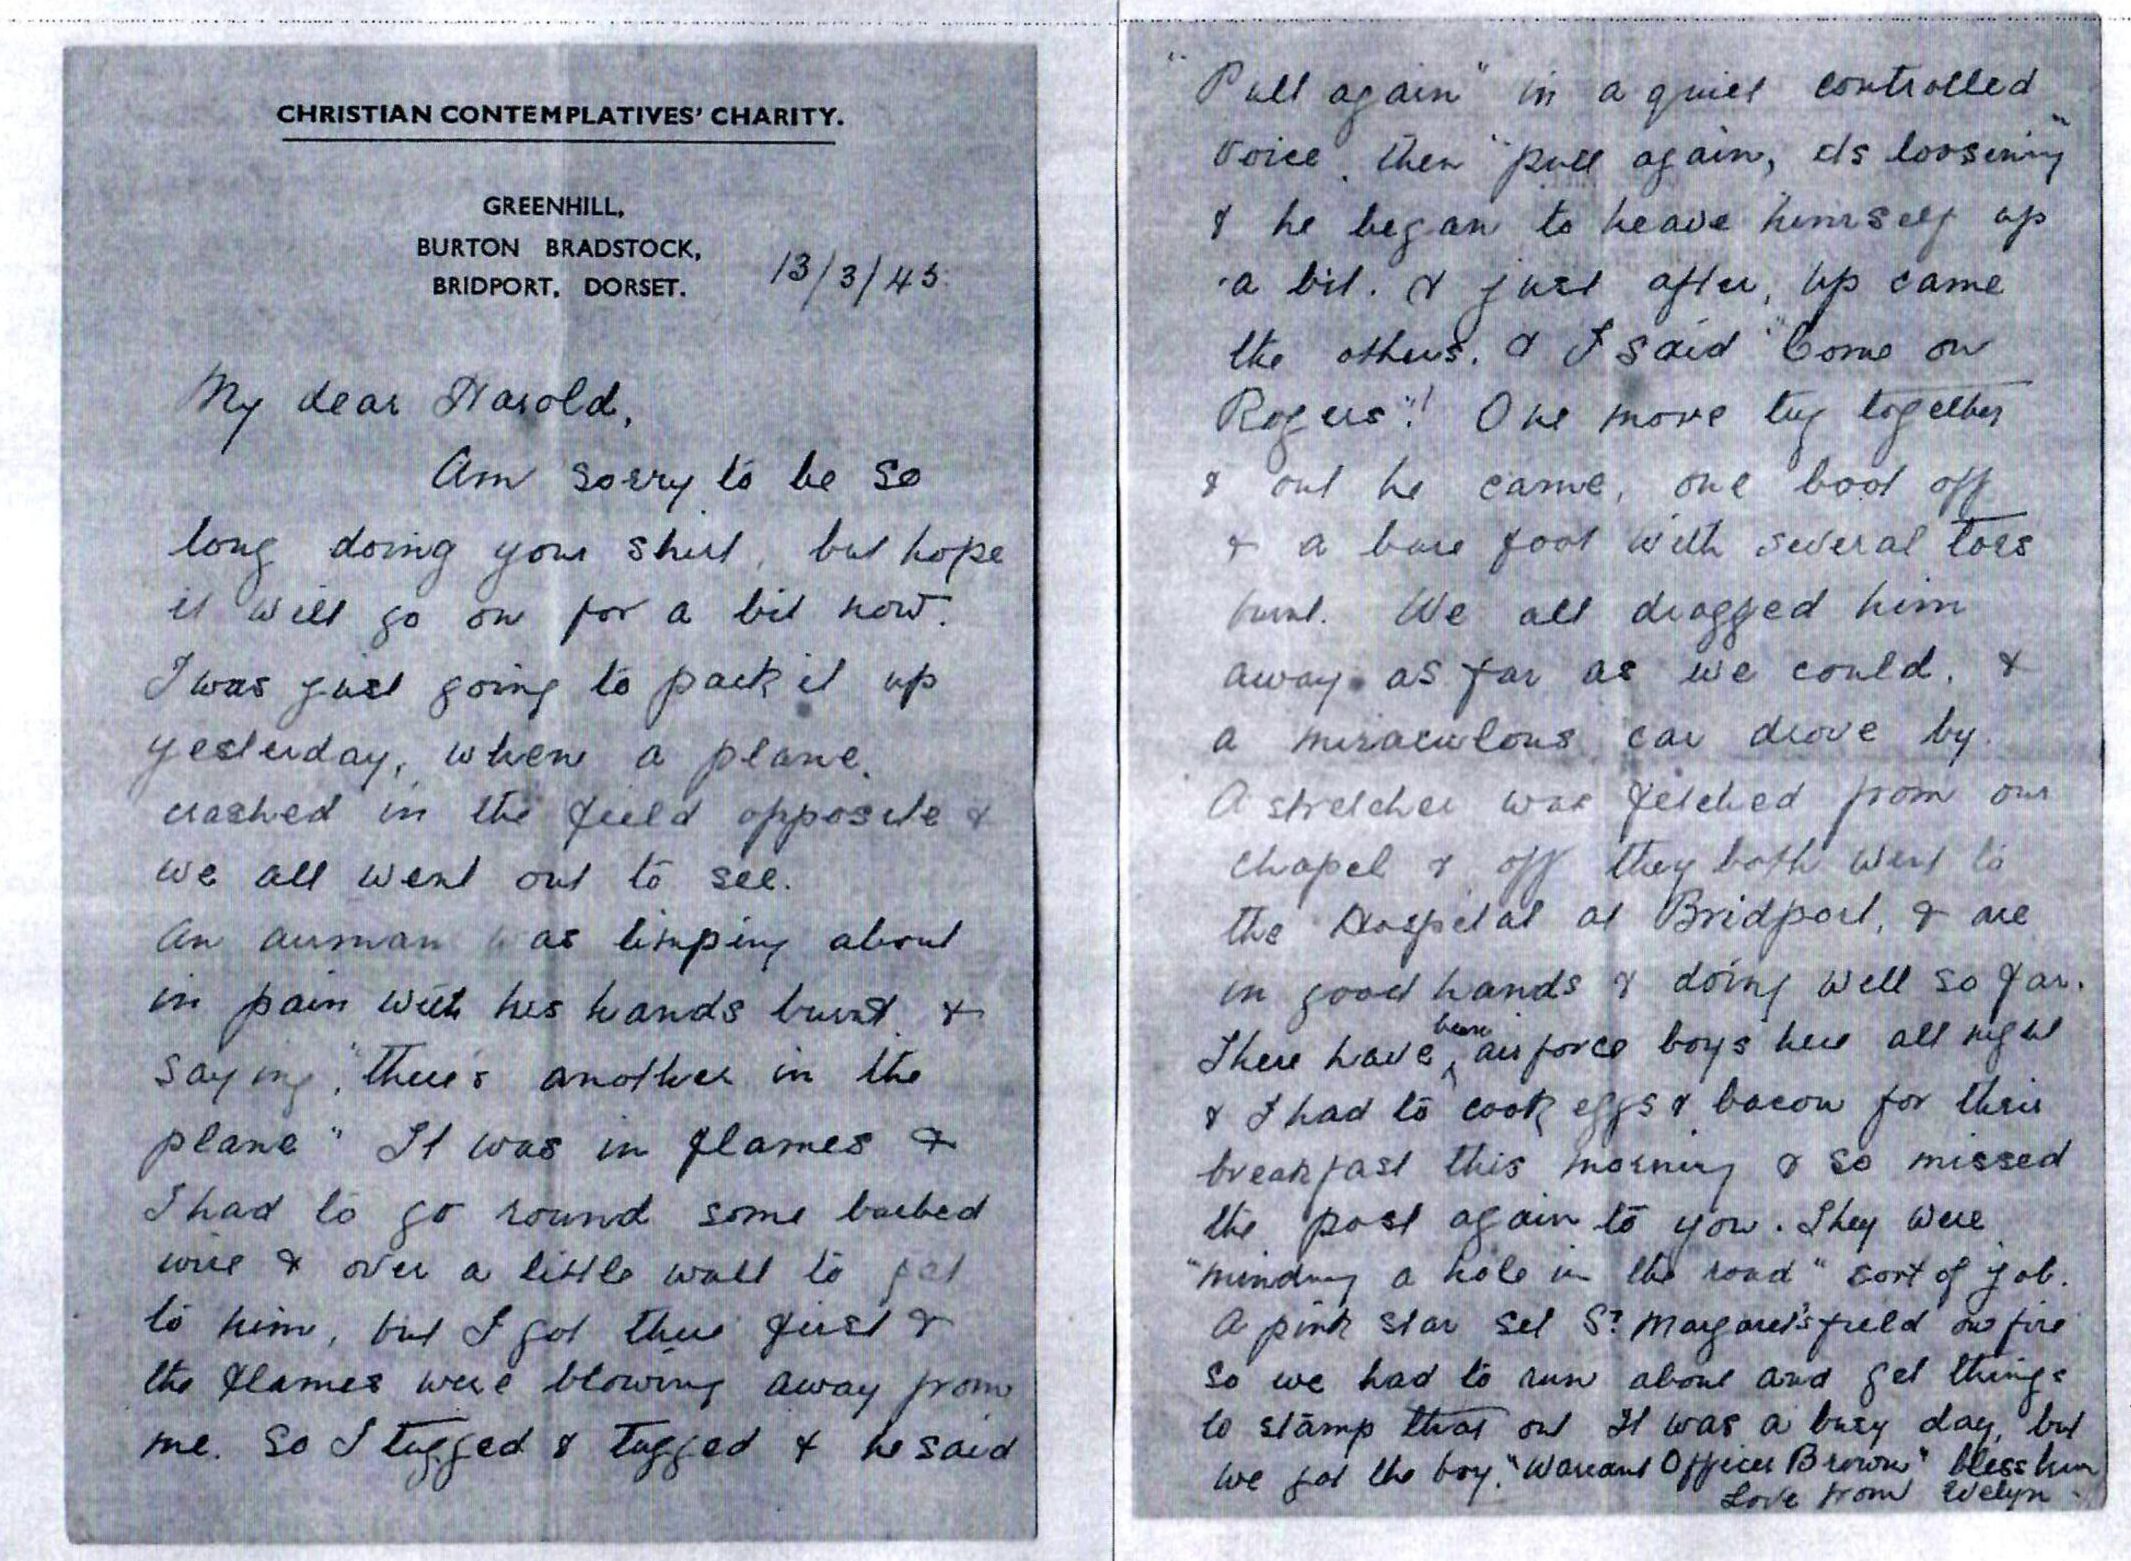 CHRISTIAN CONTEMPLATIVES' CHARITY.
GREENHILL,
BURTON BRADSTOCK,
BRIDPORT, DORSET.
13/3/45
My dear Harold,
Am sorry to be so
long doing your shirt, but hope
it will go on for a bit now.
I was just going to pack it up
yesterday, when a plane
crashed in the field opposite &
we all went out to see.
An airman was limping about
in pain with his hands burnt &
saying, "there's another in the
plane" It was in flames &
I had to go round some barbed
wire & over a little wall to get
to him, but I got there first &
the flames were blowing away from
me. So I tugged & tugged & he said
"Pull again" in a quiet controlled
voice, then "pull again, its loosening"
& he began to heave himself up
a bit. & just after, up came
the others. & I said "Come on
Rogers"! One more tug together
& out he came, one boot off
& a bare foot with several toes
burnt. We all dragged him
away as far as we could, &
a miraculous car drove by.
A stretcher was fetched from our
chapel & off they both went to
the Hospital at Bridport, & are
in good hands & doing well so far.
There have been airforce boys here all night
& I had to cook eggs & bacon for their
breakfast this morning & so missed
the post again to you. They were
"minding a hole in the road" sort of job.
A pink star set St Margaret's field on fire
so we had to run about and get things
to stamp that out It was a busy day, but
we got the boy, "Warrant Officer Brown" bless him
Love from Evelyn